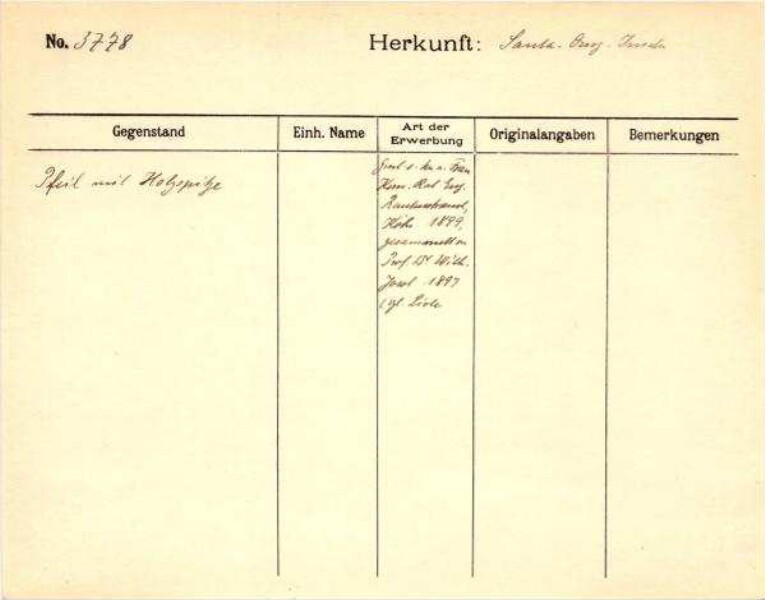 No. 3778
Herkunft: Santa-Cruz-Inseln
Gegenstand
Einh. Name
Art der
Erwerbung
Originalangaben
Bemerkungen
Pfeil mit Holzspitze
Kom. Rat Eug.
Rautenstrauch,
Köln 1899,
gesammelt von
Prof. Dr. Wilh.
Joest 1897